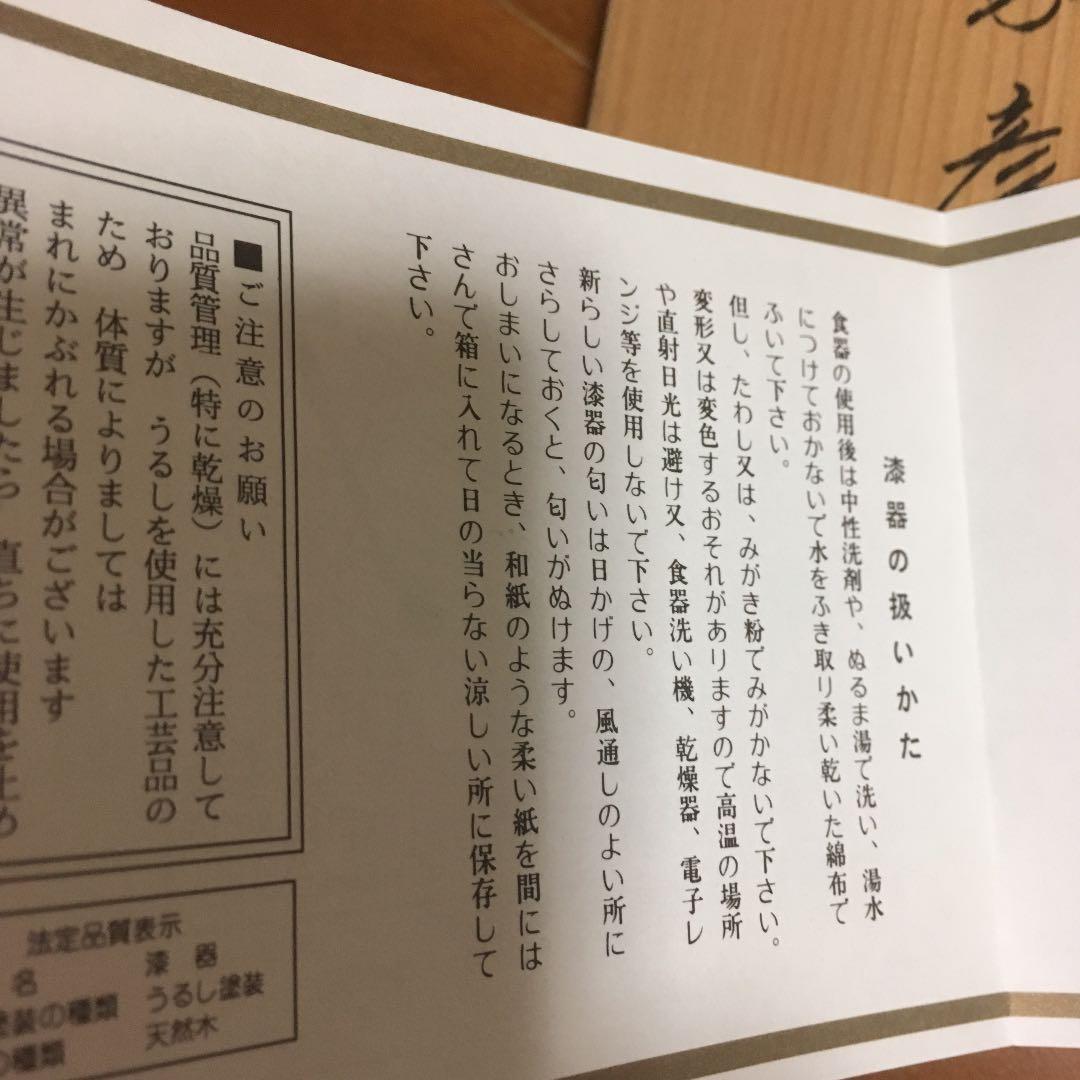 彦
漆器の扱いかた
食器の使用後は中性洗剤や、ぬるま湯で洗い、湯水
につけておかないで水をふき取り柔い乾いた綿布で
ふいて下さい。
但し、たわし又は、みがき粉でみがかないで下さい。
変形又は変色するおそれがありますので高温の場所
や直射日光は避け又、食器洗い機、乾燥器、電子レ
ンジ等を使用しないで下さい。
新らしい漆器の匂いは日かげの、風通しのよい所に
さらしておくと、匂いがぬけます。
おしまいになるとき、和紙のような柔い紙を間には
さんで箱に入れて日の当らない涼しい所に保存して
下さい。
■ご注意のお願い
品質管理（特に乾燥）には充分注意して
おりますが うるしを使用した工芸品の
ため 体質によりましては
まれにかぶれる場合がございます
異常が生じましたら 直ちに使用を止め
法定品質表示
名 漆器
塗装の種類 うるし塗装
の種類 天然木